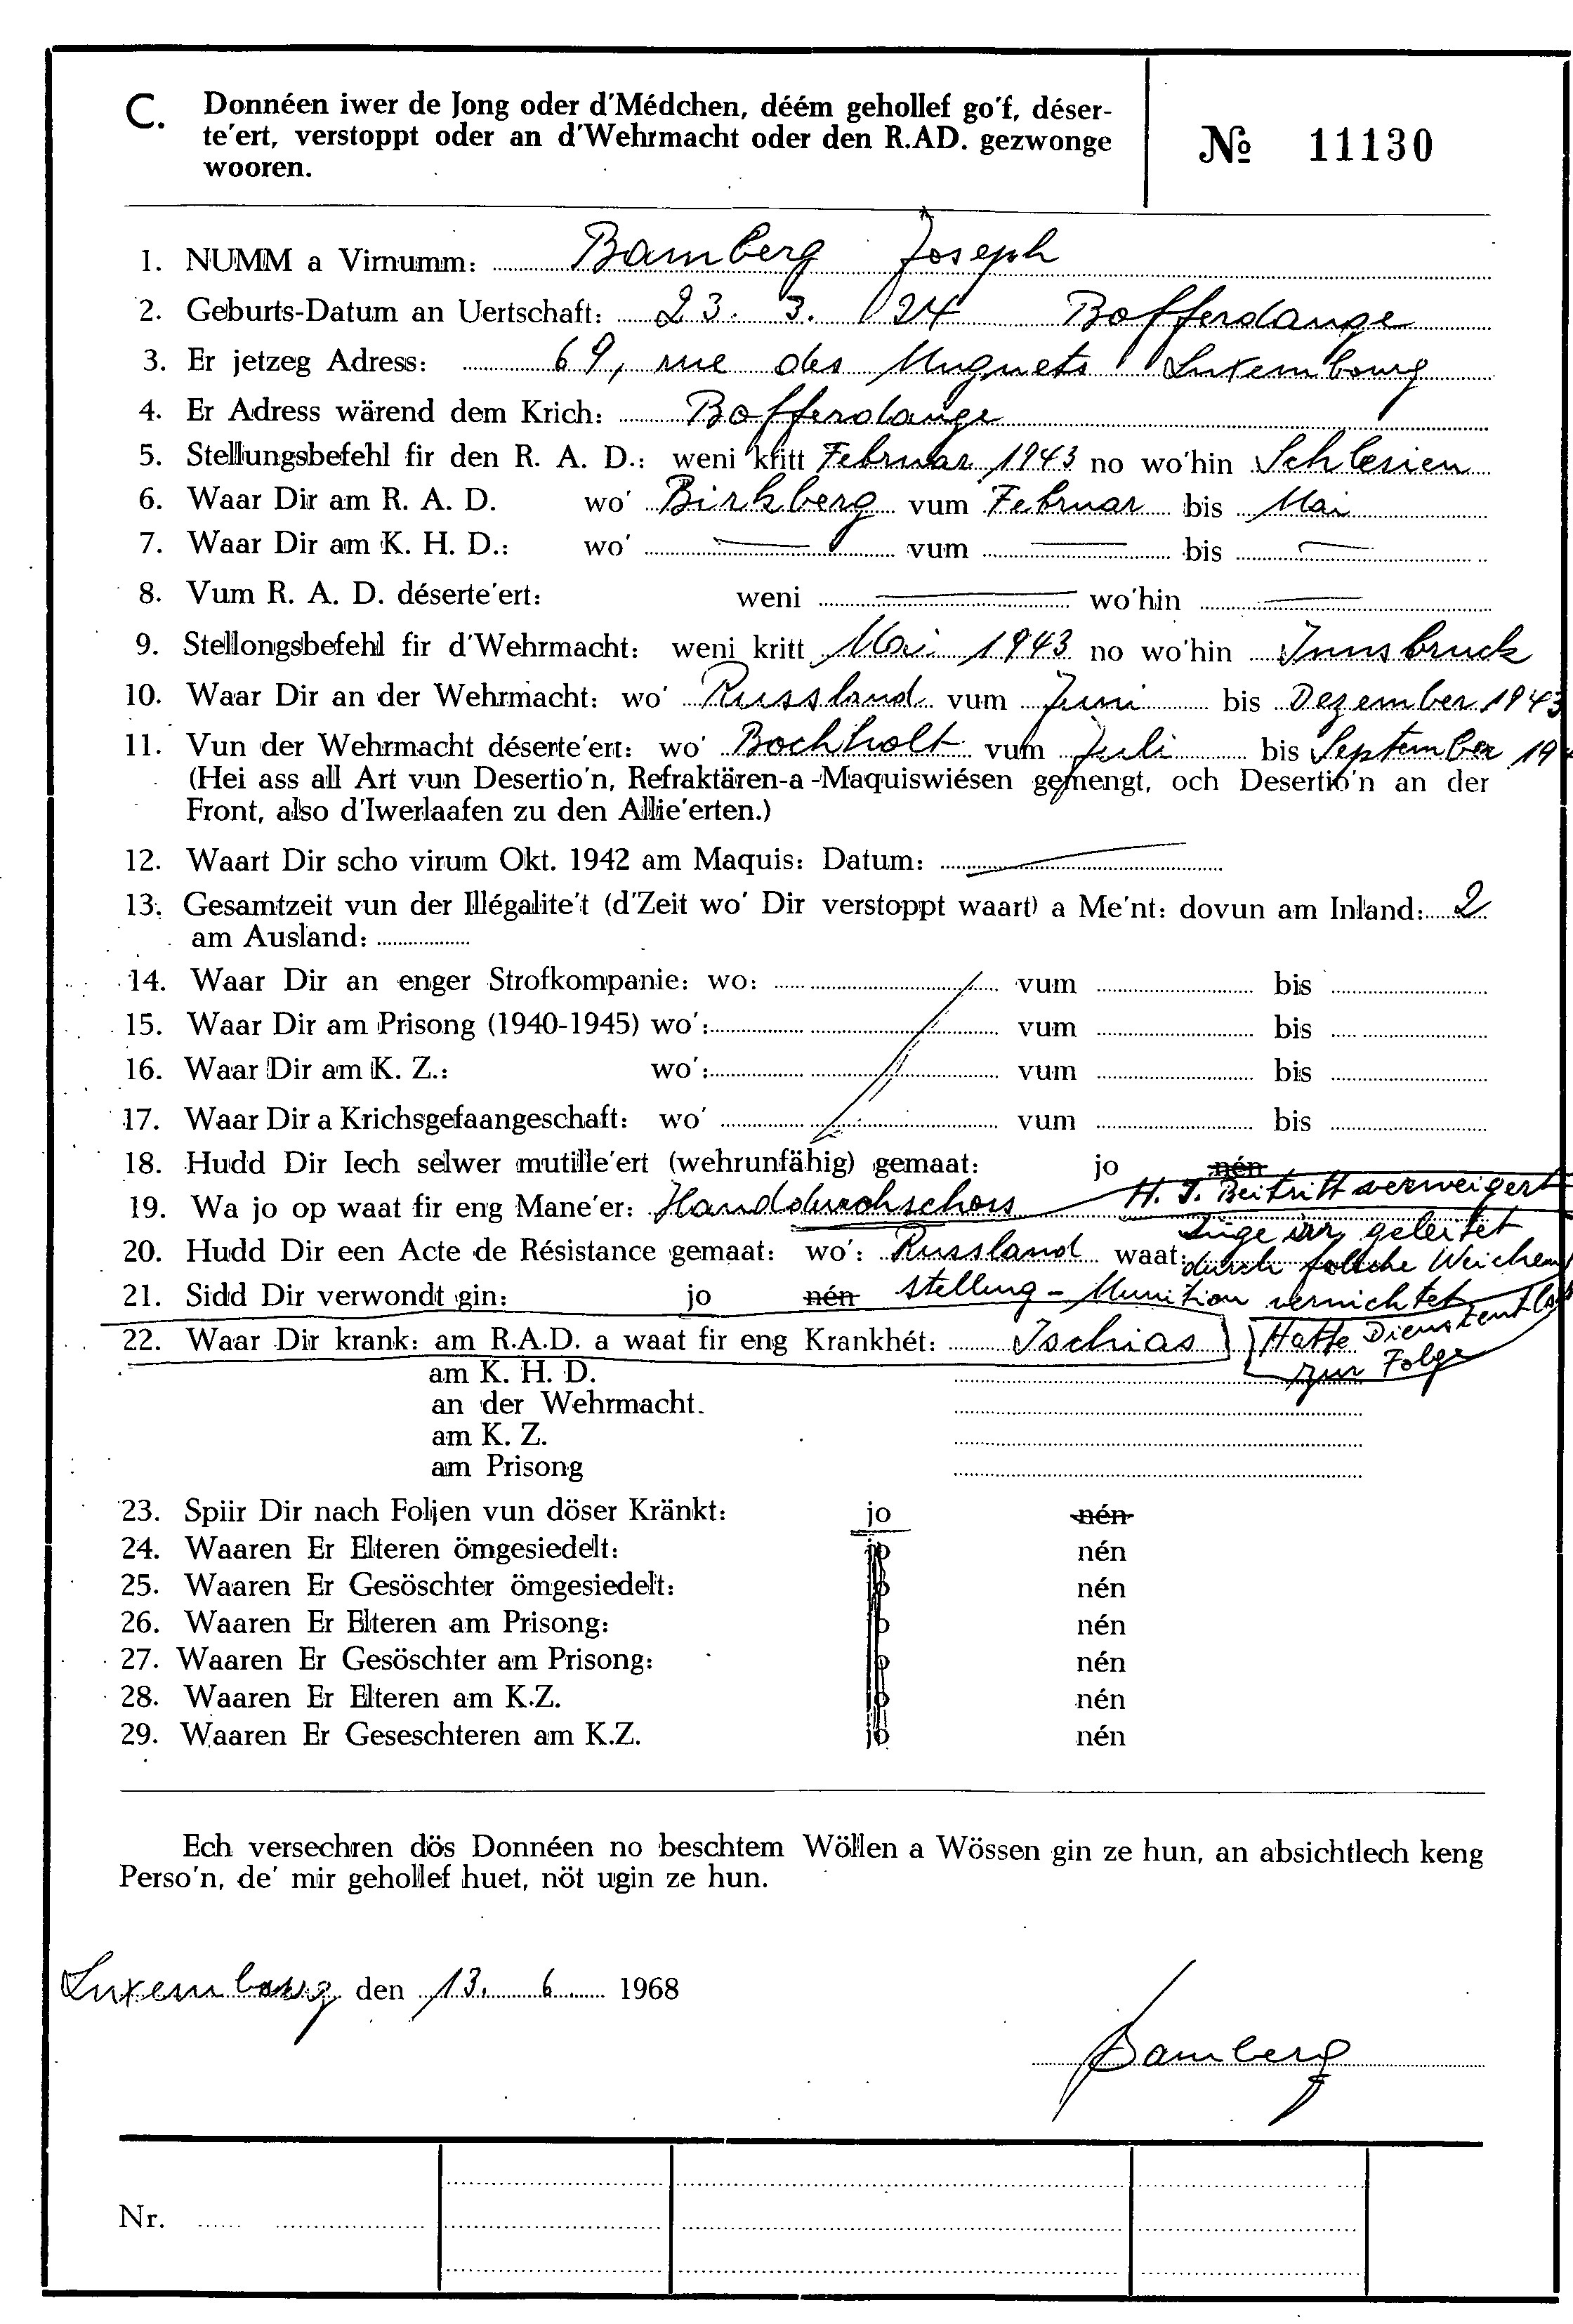 C. Donnéen iwer de Jong oder d'Médchen, déém gehollef go'f, déser-
te'ert, verstoppt oder an d'Wehrmacht oder den R.AD. gezwonge
wooren.
№ 11130
1. NUMM a Virnumm: Bamberg Joseph
2. Geburts-Datum an Uertschaft: 23. 3. 24 Bofferdange
3. Er jetzeg Adress: 69, rue des Muguets Luxembourg
4. Er Adress wärend dem Krich: Bofferdange
5. Stellungsbefehl fir den R. A. D.: weni kritt Februar 1943 no wo'hin Schlesien
6. Waar Dir am R. A. D. wo' Birkberg vum Februar bis Mai
7. Waar Dir am K. H. D.: wo' — vum — bis —
8. Vum R. A. D. déserte'ert: weni — wo'hin —
9. Stellongsbefehl fir d'Wehrmacht: weni kritt Mai 1943 no wo'hin Innsbruck
10. Waar Dir an der Wehrmacht: wo' Russland vum Juni bis Dezember 1943
11. Vun der Wehrmacht déserte'ert: wo' Bochholt vum Juli bis September 19
(Hei ass all Art vun Desertio'n, Refraktären-a-Maquiswiésen gemengt, och Desertio'n an der
Front, also d'Iwerlaafen zu den Allie'erten.)
12. Waart Dir scho virum Okt. 1942 am Maquis: Datum: —
13. Gesamtzeit vun der Illégalite't (d'Zeit wo' Dir verstoppt waart) a Me'nt: dovun am Inland: 2
am Ausland:
14. Waar Dir an enger Strofkompanie: wo: vum bis
15. Waar Dir am Prisong (1940-1945) wo': vum bis
16. Waar Dir am K. Z.: wo': vum bis
17. Waar Dir a Krichsgefaangeschaft: wo' vum bis
18. Hudd Dir Iech selwer mutille'ert (wehrunfähig) gemaat: jo nén
19. Wa jo op waat fir eng Mane'er: Handdurchschoss H. J. Beitritt verweigert
20. Hudd Dir een Acte de Résistance gemaat: wo': Russland waat: Züge irr geleitet
durch falsche Weichen
21. Sidd Dir verwondt gin: jo nén stellung - Munition vernichtet
22. Waar Dir krank: am R.A.D. a waat fir eng Krankhét: Ischias Hatte Dienstentlass
zur Folge
am K. H. D.
an der Wehrmacht.
am K. Z.
am Prisong
23. Spiir Dir nach Foljen vun döser Kränkt: jo nén
24. Waaren Er Elteren ömgesiedelt: jo nén
25. Waaren Er Gesöschter ömgesiedelt: jo nén
26. Waaren Er Elteren am Prisong: jo nén
27. Waaren Er Gesöschter am Prisong: jo nén
28. Waaren Er Elteren am K.Z. jo nén
29. Waaren Er Geseschteren am K.Z. jo nén
Ech versechren dös Donnéen no beschtem Wöllen a Wössen gin ze hun, an absichtlech keng
Perso'n, de' mir gehollef huet, nöt ugin ze hun.
Luxembourg den 13. 6. 1968
Bamberg
Nr.